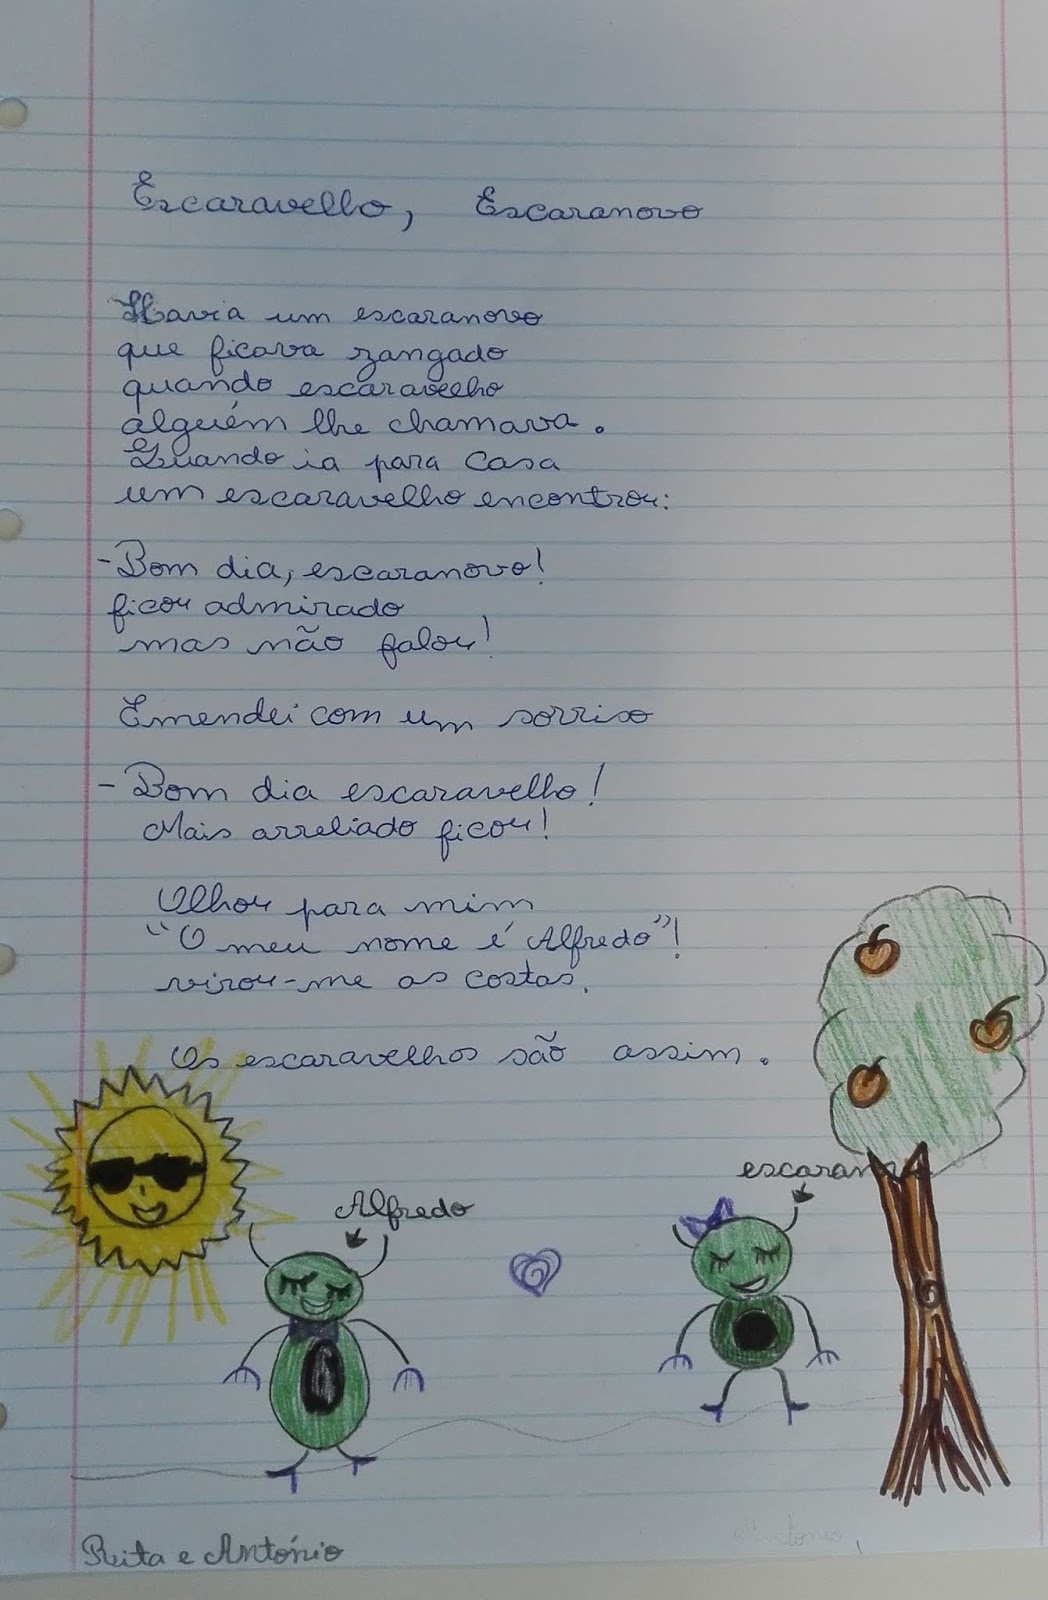 Escaravelho, Escaranovo
Havia um escaranovo
que ficava zangado
quando escaravelho
alguém lhe chamava.
Quando ia para casa
um escaravelho encontrou:
-Bom dia, escaranovo!
ficou admirado
mas não falou!
Emendei com um sorriso
- Bom dia escaravelho!
Mais arreliado ficou!
Olhou para mim
"O meu nome é Alfredo"!
virou-me as costas.
Os escaravelhos são assim.
Alfredo
Rita e António